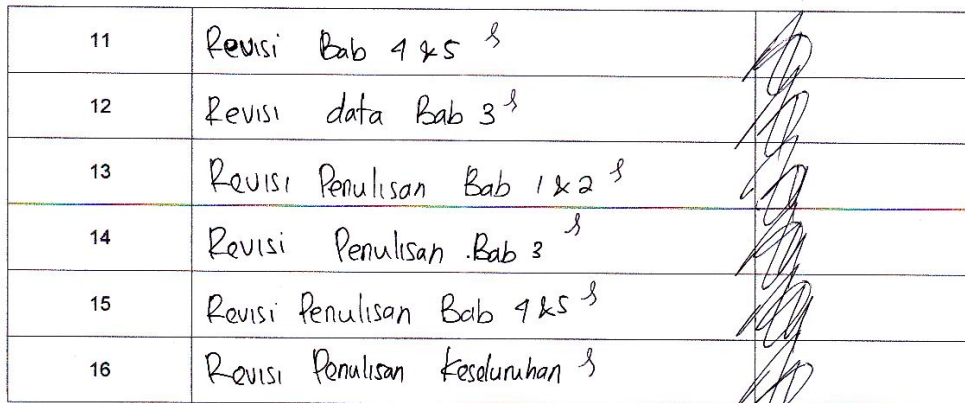 11 Revisi Bab 4 & 5
12 Revisi data Bab 3
13 Revisi Penulisan Bab 1 & 2
14 Revisi Penulisan Bab 3
15 Revisi Penulisan Bab 4 & 5
16 Revisi Penulisan Keseluruhan